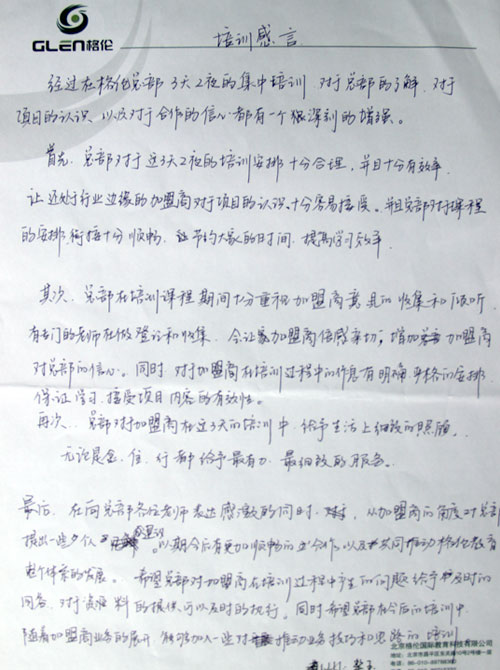 GLEN格伦
培训感言
经过在格伦总部3天2夜的集中培训,对于总部的了解,对于
项目的认识,以及对于合作的信心都有一个很深刻的增强。
首先,总部对于这3天2夜的培训安排十分合理,并且十分有效率,
让还处于行业边缘的加盟商对于项目的认识、十分容易接受。并且总部对于课程
的安排,衔接十分顺畅,节约大家的时间,提高学习效率
其次,总部在培训课程期间十分重视加盟商意见的收集和倾听,
有专门的老师在做登记和收集,令让加盟商倍感亲切,增加加盟商
对总部的信心。同时,对于加盟商在培训过程中的作息有明确严格的安排
保证学习、接受项目内容的有效性。
再次,总部对于加盟商在这3天的培训中,给予生活上细致的照顾,
无论是食、住、行都给予最有力、最细致的服务。
最后,在向总部各位老师表达感激的同时,从加盟商的角度对总部
提出一些个人建议,以期今后有更加顺畅的合作,以及共同推动格伦教育
整个体系的发展。希望总部对加盟商在培训过程中产生的问题给予及时的
回答,对于资料的提供,可以及时的执行,同时希望总部在今后的培训中
随着加盟商业务的展开,能够加入一些对推动业务技巧和思路的培训
北京格伦国际教育科技有限公司